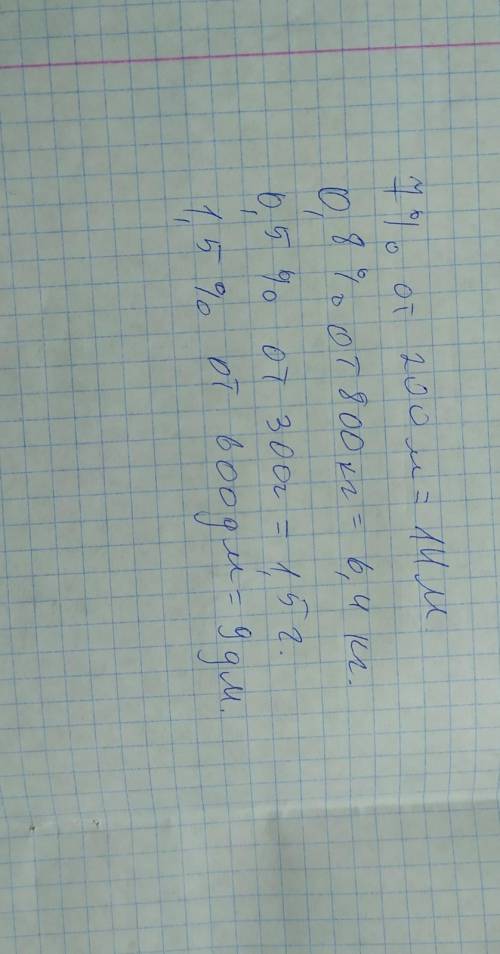 7% от 200 м = 14 м.
0,8% от 800 кг = 6,4 кг.
0,5% от 300 г = 1,5 г.
1,5% от 600 дм = 9 дм.